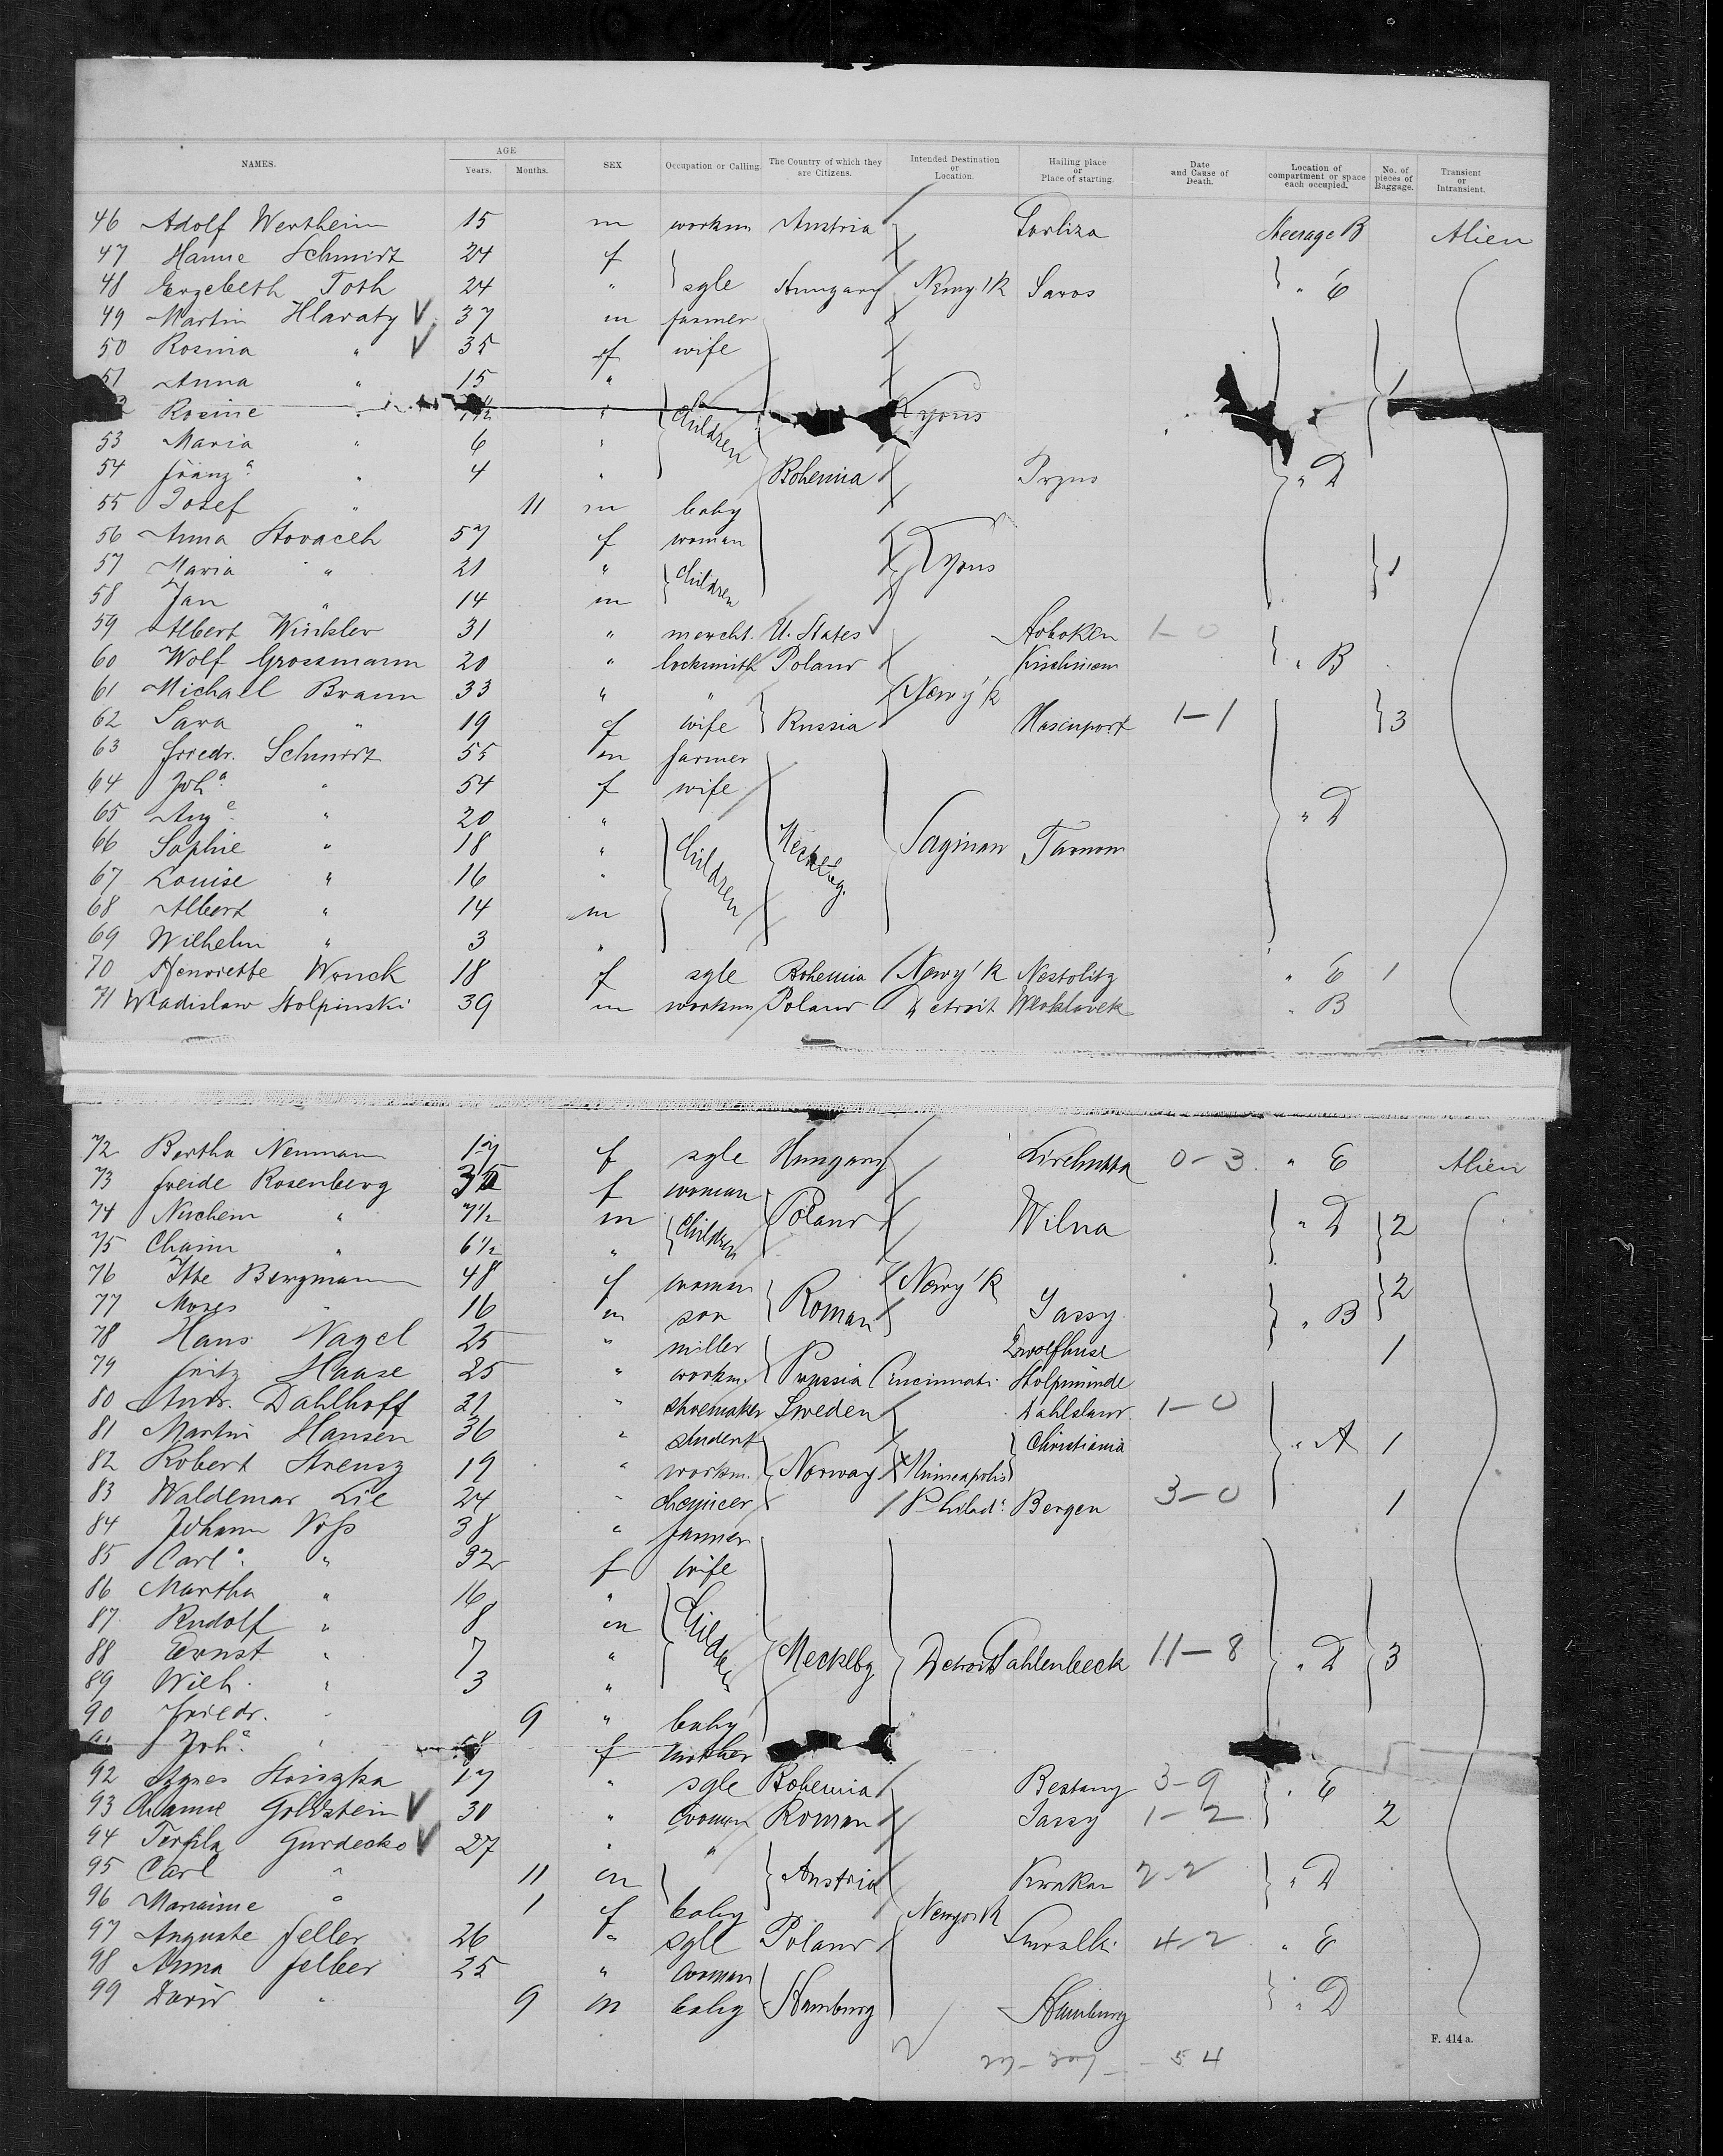 NAMES. AGE Years. Months. SEX Occupation or Calling. The Country of which they are Citizens. Intended Destination or Location. Hailing place or Place of starting. Date and Cause of Death. Location of compartment or space each occupied. No. of pieces of Baggage. Transient or Intransient.
46 Adolf Wertheim 15 m workm Austria Torliza Steerage B Alien
47 Hanne Schmidt 24 f
48 Erzebeth Toth 24 " sgle Hungary Newy'k Saros " E
49 Martin Hlavaty V 37 m farmer
50 Rosina " V 35 f wife
51 Anna " 15 " 1
Rosine " " Children Lyons
53 Maria " 6 "
54 Franz.a " 4 " Bohemia " D
55 Josef " 11 m baby
56 Anna Hovaceh 57 f woman
57 Maria " 21 " Children Lyons 1
58 Jan " 14 m
59 Albert Winkler 31 " mercht. U. States Hoboken 1-0
60 Wolf Grossmann 20 " locksmith Poland " B
61 Michael Braun 33 " " Newy'k
62 Sara " 19 f wife Russia Hasenport 1-1 3
63 Friedr. Schmidt 55 m farmer
64 Joh.a " 54 f wife
65 Aug.e " 20 " " D
66 Sophie " 18 " Children Mecklbg. Saginaw
67 Louise " 16 "
68 Albert " 14 m
69 Wilhelm " 3 "
70 Henriette Wonck 18 f sgle Bohemia Newy'k Nestolitz " E 1
71 Wladislaw Stolpinski 39 m workm Poland Detroit Wloklavek " B
72 Bertha Neumann 17 f sgle Hungary 0-3 " E Alien
73 Freide Rosenberg f woman
74 Nochem " 7½ m Children Poland Wilna " D 2
75 Chaim " 6½ "
76 Itte Bergmann 48 f woman Newy'k 2
77 Moses " 16 m son Roman Jassy " B
78 Hans Nagel 25 " miller 1
79 Fritz Haase 25 " workm. Prussia Cincinnati Stolpmünde
80 Andr. Dahlhoff 21 " shoemaker Sweden Dahlsland 1-0
81 Martin Hansen 36 " student Christiania " A 1
82 Robert Strensz 19 " workm. Norway Minneapolis
83 Waldemar Lie 24 " Philad.a Bergen 3-0 1
84 Johann Voss 38 " farmer
85 Carl.a " 32 f wife
86 Martha " 16 "
87 Rudolf " 8 m Children
88 Ernst " 7 " Mecklbg Detroit Pahlenbeck 11-8 " D 3
89 Wilh. " 3 "
90 Friedr. " 9 " baby
Joh.a " f mother
92 Agnes 17 " sgle Bohemia 3-9 " E
93 Channe Goldstein V 30 " woman Roman Jassy 1-2 2
94 Terfila Gurdecko V 27 " "
95 Carl " 11 m Austria Krakau 2-2 " D
96 Marianne " 1 f baby Newyork
97 Auguste Feller 26 " sgle Poland Suwalki 4-2 " E
98 Anna Felber 25 " woman
99 David " 9 m baby Hamburg Hamburg " D
F. 414 a.
54